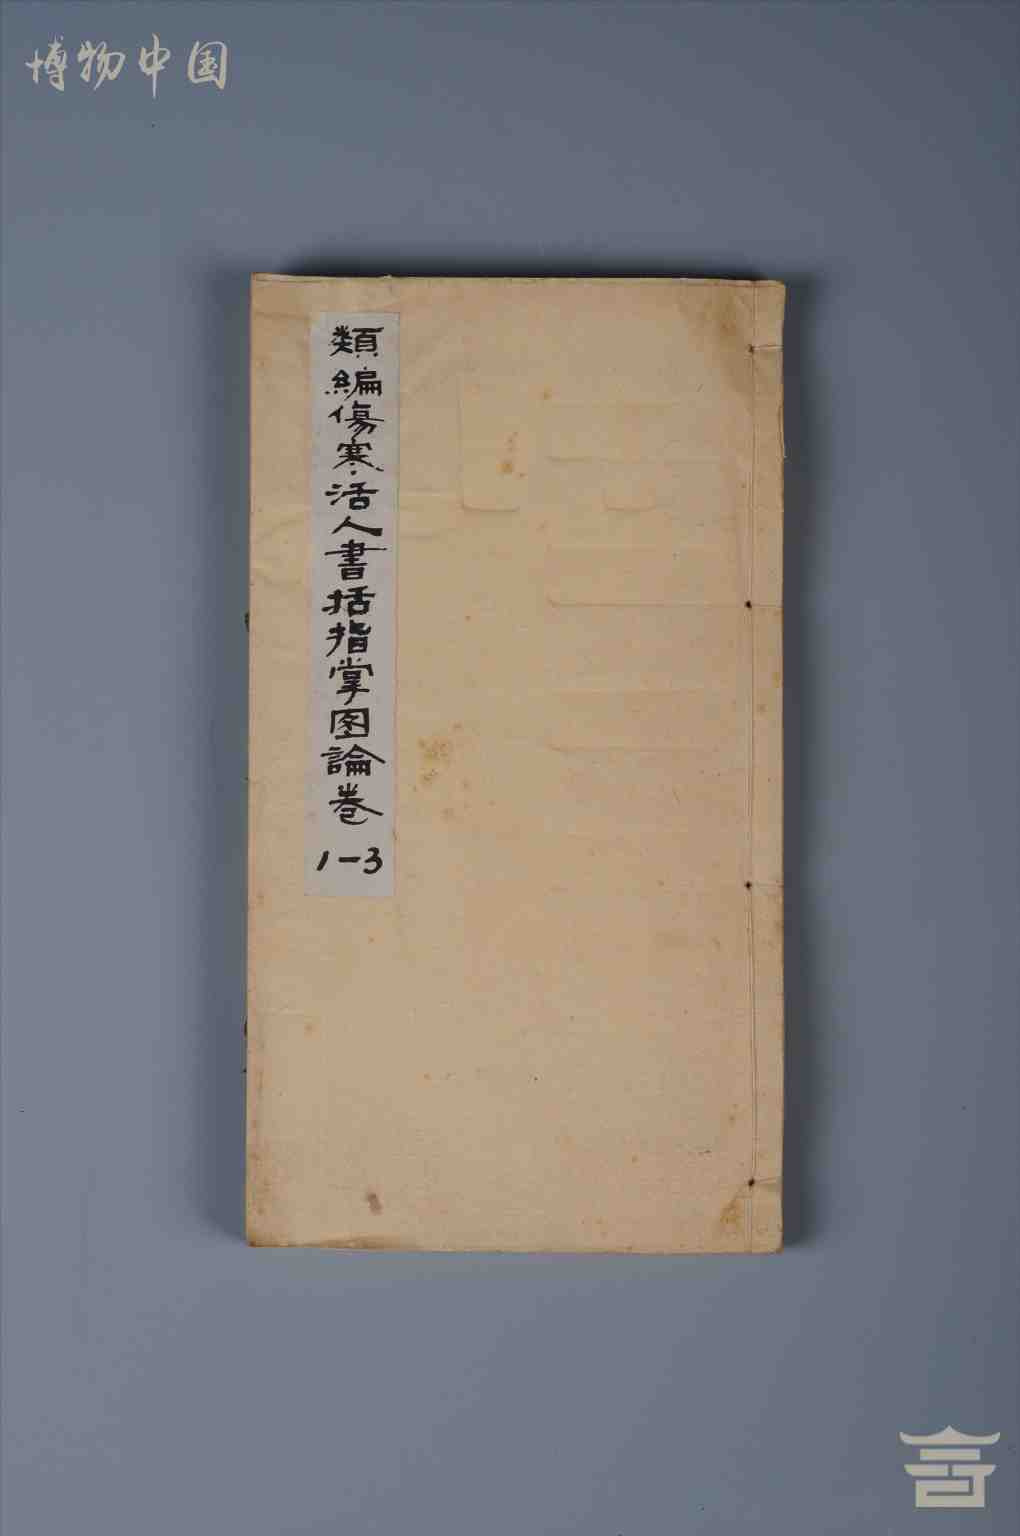 博物中国
類編傷寒活人書括指掌图論卷
1-3